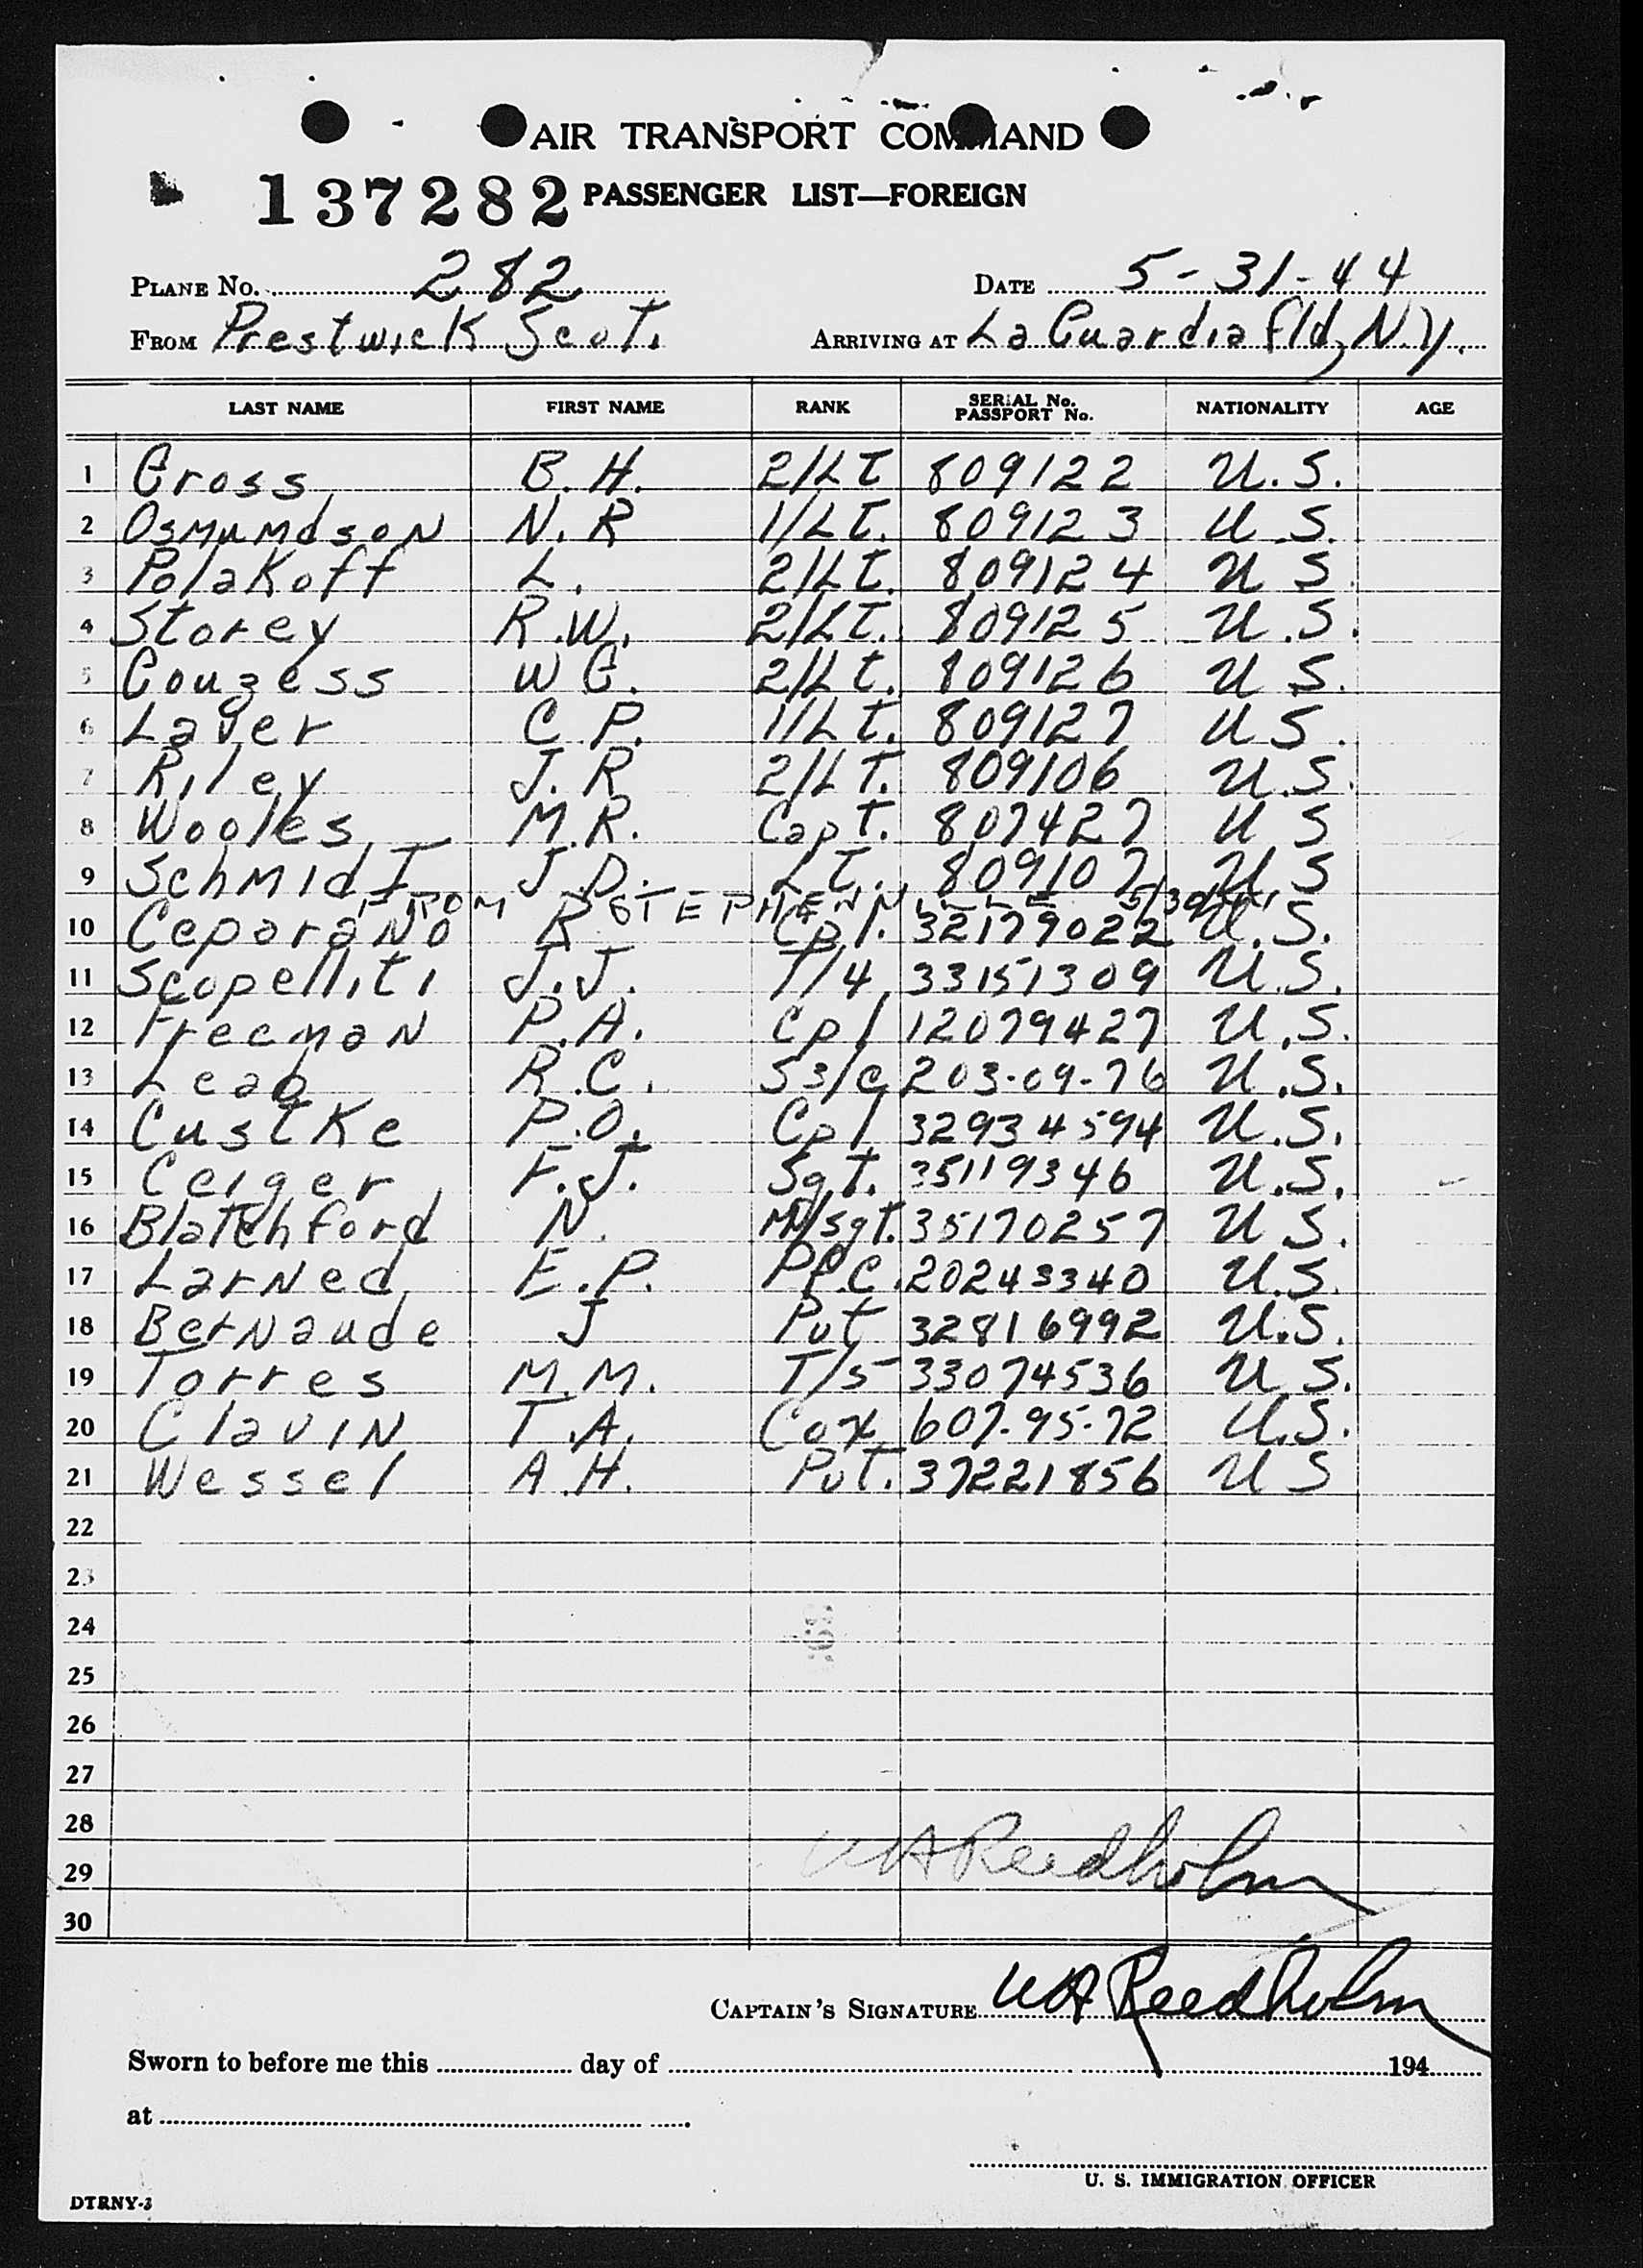 AIR TRANSPORT COMMAND
137282 PASSENGER LIST—FOREIGN
PLANE No. 282 DATE 5-31-44
FROM Prestwick Scot. ARRIVING AT La Guardia Fld, N.Y.
LAST NAME FIRST NAME RANK SERIAL No. PASSPORT No. NATIONALITY AGE
1 Gross B.H. 2/LT 809122 U.S.
2 Osmumdson N.R 1/LT. 809123 U.S.
3 Polakoff L. 2/LT. 809124 U S.
4 Storey R.W. 2/LT. 809125 U.S.
5 Gouzess W G. 2/Lt. 809126 U S.
6 Laver C P. 1/Lt. 809127 U S.
7 Riley J.R 2/LT. 809106 U.S.
8 Wooles M.R. Capt. 807427 U S
9 Schmidt J.D. LT. 809107 U S
FROM STEPHENVILLE 5/30/44
10 Ceporano R Cpl. 32179022 U.S.
11 Scopelliti J.J. T/4 33151309 U.S.
12 Freeman P.A. Cpl 12079427 U.S.
13 Leab R.C. S3/c 203-09-76 U.S.
14 Gustke P.O. Cpl 32934594 U.S.
15 Geiger F.J. Sgt. 35119346 U.S.
16 Blatchford N. M/Sgt. 35170257 U S.
17 Larned E.P. PFC. 20243340 U.S.
18 Bernaude J Pvt 32816992 U.S.
19 Torres M.M. T/5 33074536 U S.
20 Clavin T.A. Cox 607-95-72 U.S.
21 Wessel A.H. Pvt. 37221856 U S
22
23
24
25
26
27
28
29 WA Reedholm
30
CAPTAIN'S SIGNATURE WA Reedholm
Sworn to before me this day of 194
at
U. S. IMMIGRATION OFFICER
DTRNY-3